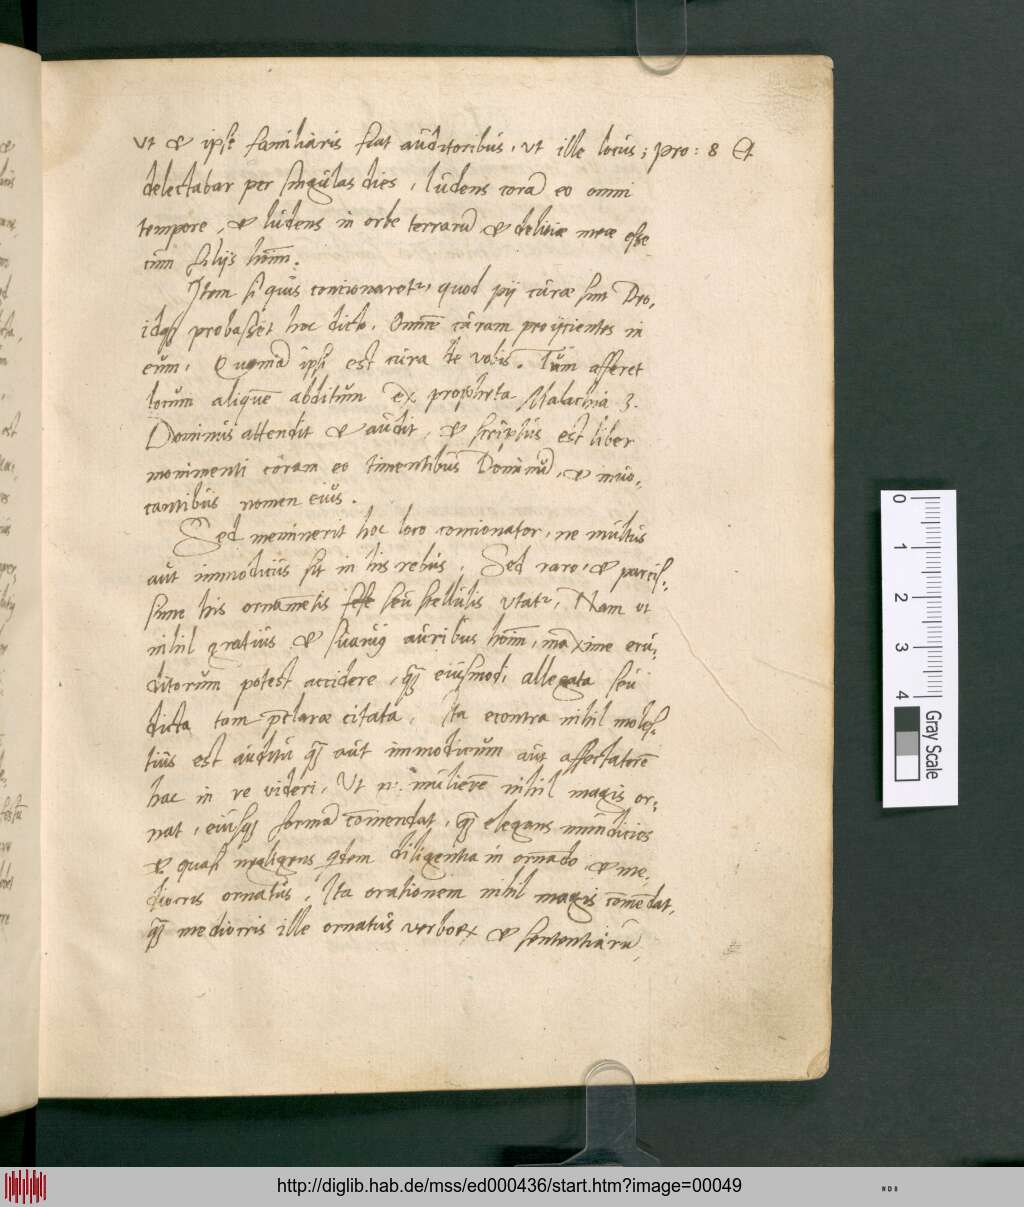 ut & ipse familiaris fiat auditoribus, ut ille locus; pro: 8 Et
delectabar per singulas dies, ludens corā eo omni
tempore, & ludens in orbe terrarū & delitiæ meæ esse
cum filijs hoīm.
Item si quis concionaretr, quod pij curæ sint Deo,
idqȝ probasset hoc dicto. Omnē curam proijcientes in
eum, Quoniā ipsi est cura de vobis. Tum afferet
locum aliquē abditum ex propheta Malachia 3.
Dominus attendit & audit, & scriptus est liber
monimenti coram eo timentibus Dominū, & invo,
cantibus nomen eius.
Sed meminerit hoc loco concionator, ne multus
aut immodicus sit in his rebus. Sed raro, & parcis,
sime his ornamētis seu stellulis utatr, Nam ut
nihil gratius & suauius auribus hoīm, maxime eru,
ditorum potest accidere, qȝ eiusmodi allegata seu
dicta tam pclaræ citata, Ita econtra nihil moles,
tius est auditu qȝ aut immodicum aut affectatorē
hac in re videri, Ut n. mulierē nihil magis or,
nat, eiusqȝ formā comendat, qȝ elegans mundicies
& quasi negligens qdem diligentia in ornādo & me,
diocris ornatus, Ita orationem nihil magis comēdat,
qȝ mediocris ille ornatus verborx & sententiarū,
0
1
2
3
4
Gray Scale
http://diglib.hab.de/mss/ed000436/start.htm?image=00049